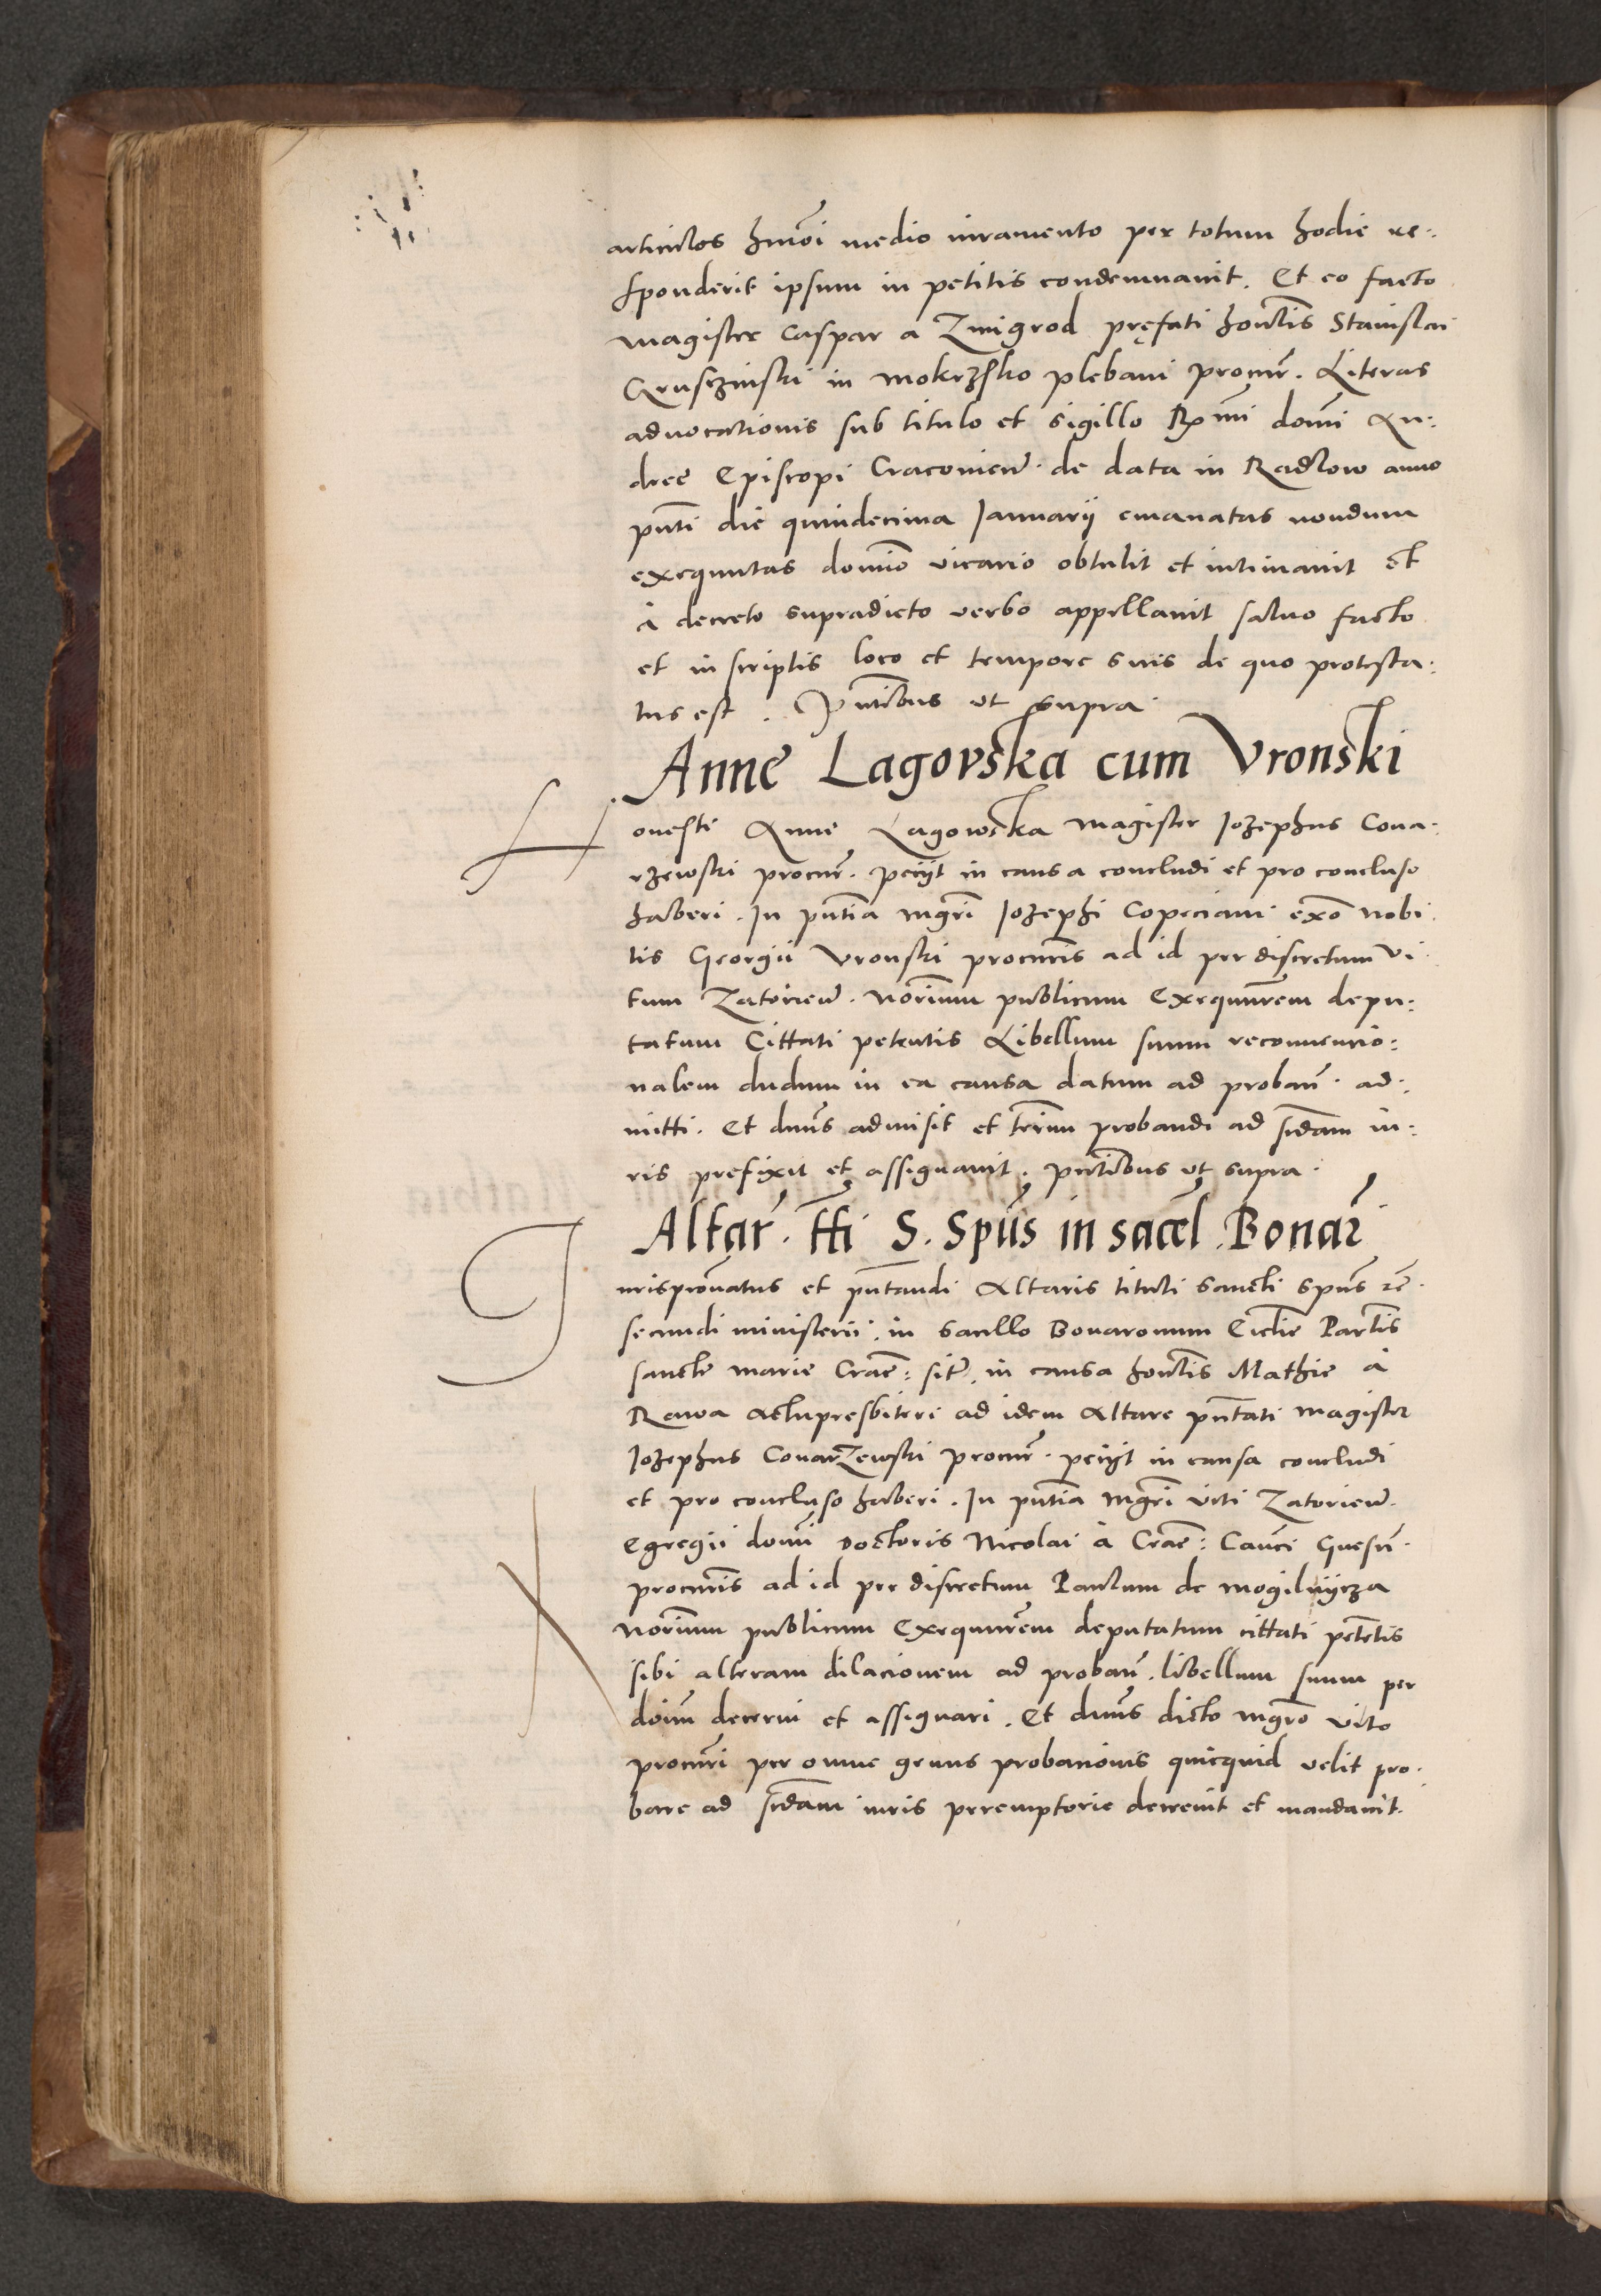 articulos hmõi medio iuramento per totum hodie re-
sponderit ipsum in petitis condemnavit. Et eo facto
magister Caspar a Zmigrod pręfati hon̄tis Stanislai
Gruszinski in mokrzsko plebani procur. Literas
advocationis sub titulo et sigillo Rx̄mi domī An:
dreę Episcopi Cracovien̄. de data in Radlow anno
pn̄ti die quindecima Ianuarij emanatas nondum
exequutas domīo vicario obtulit et intimavit Et
à decreto supradicto verbo appellavit salvo facto
et in scriptis loco et tempore suis de quo protesta:
tus est. Pn̄tibus ut supra
Anne Lagovska cum Vronski
Honeste Anne Lagowska magister Iozephus Cova:
rzewski procur. peciit in causa concludi et pro concluso
haberi. In pn̄tia mgr̄i Iozephi Copeciani exõ nobi
lis Georgii Vronski procur̄is ad id per discretum Vi
tum Zatorien̄. nor̄ium publicum Exequur̄em depu:
tatum Cittati petentis Libellum suum reconvencio:
nalem dudum in ea causa datum ad proban̄. ad:
mitti. Et dn̄us admisit et ter̄ium probandi ad sc̄dam iu:
ris prefixit et assignavit. pn̄tibus ut supra.
Altar̄. tt̄i S. Spūs in sacel. Bonar
Iurispr̄onatus et pn̄tandi Altaris tituli sancti spūs
secundi ministerii, in sacello Bonaronum Eccl̄ie Par̄tis
sancte marie Crac̄: sit̄. in causa hon̄tis Mathie à
Rawa actupresbiteri ad idem Altare pn̄tati magister
Iozephus Covarzewski procur̄. peciit in causa concludi
et pro concluso haberi. In pn̄tia mgr̄i Viti Zatorien̄.
Egregii domī Doctoris Nicolai à Crac̄: Can̄ci Gnesn̄.
procur̄is ad id per discretum Paulum de mogilnijcza
nor̄ium publicum Exequur̄em deputatum cittati petētis
sibi alteram dilacionem ad proban̄. libellum suum per
doīm decerni et assignari. Et dn̄us dicto mgr̄o vito
procur̄i per omne genus probationis quicquid velit pro:
bare ad sc̄dam iuris peremptorie decrevit et mandavit.